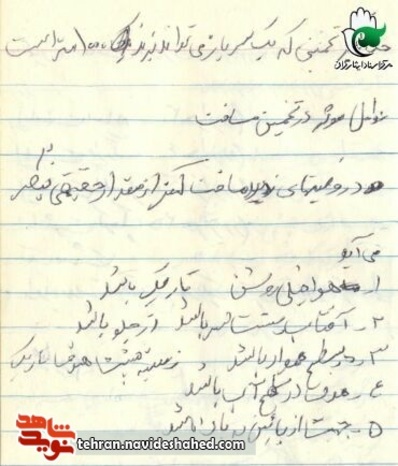 تخمینی که یک سرباز می تواند بزند ۱۰۰۰ متر است
عوامل موثر در تخمین مسافت
در وضعیتهای زیر مسافت کمتر از مقدار حقیقی بنظر
می آید
۱- هوا خیلی روشن تاریک باشد
۲- آفتاب پشت سر باشد از جلو باشد
۳- در سطح هموار باشد زمینه پشت هدف تاریک
۴- هدف در سطح آب باشد
۵- جهت از پائین به بالا باشد
مرکز اسناد ایثارگران
شاهد
نوید
tehran.navideshahed.com